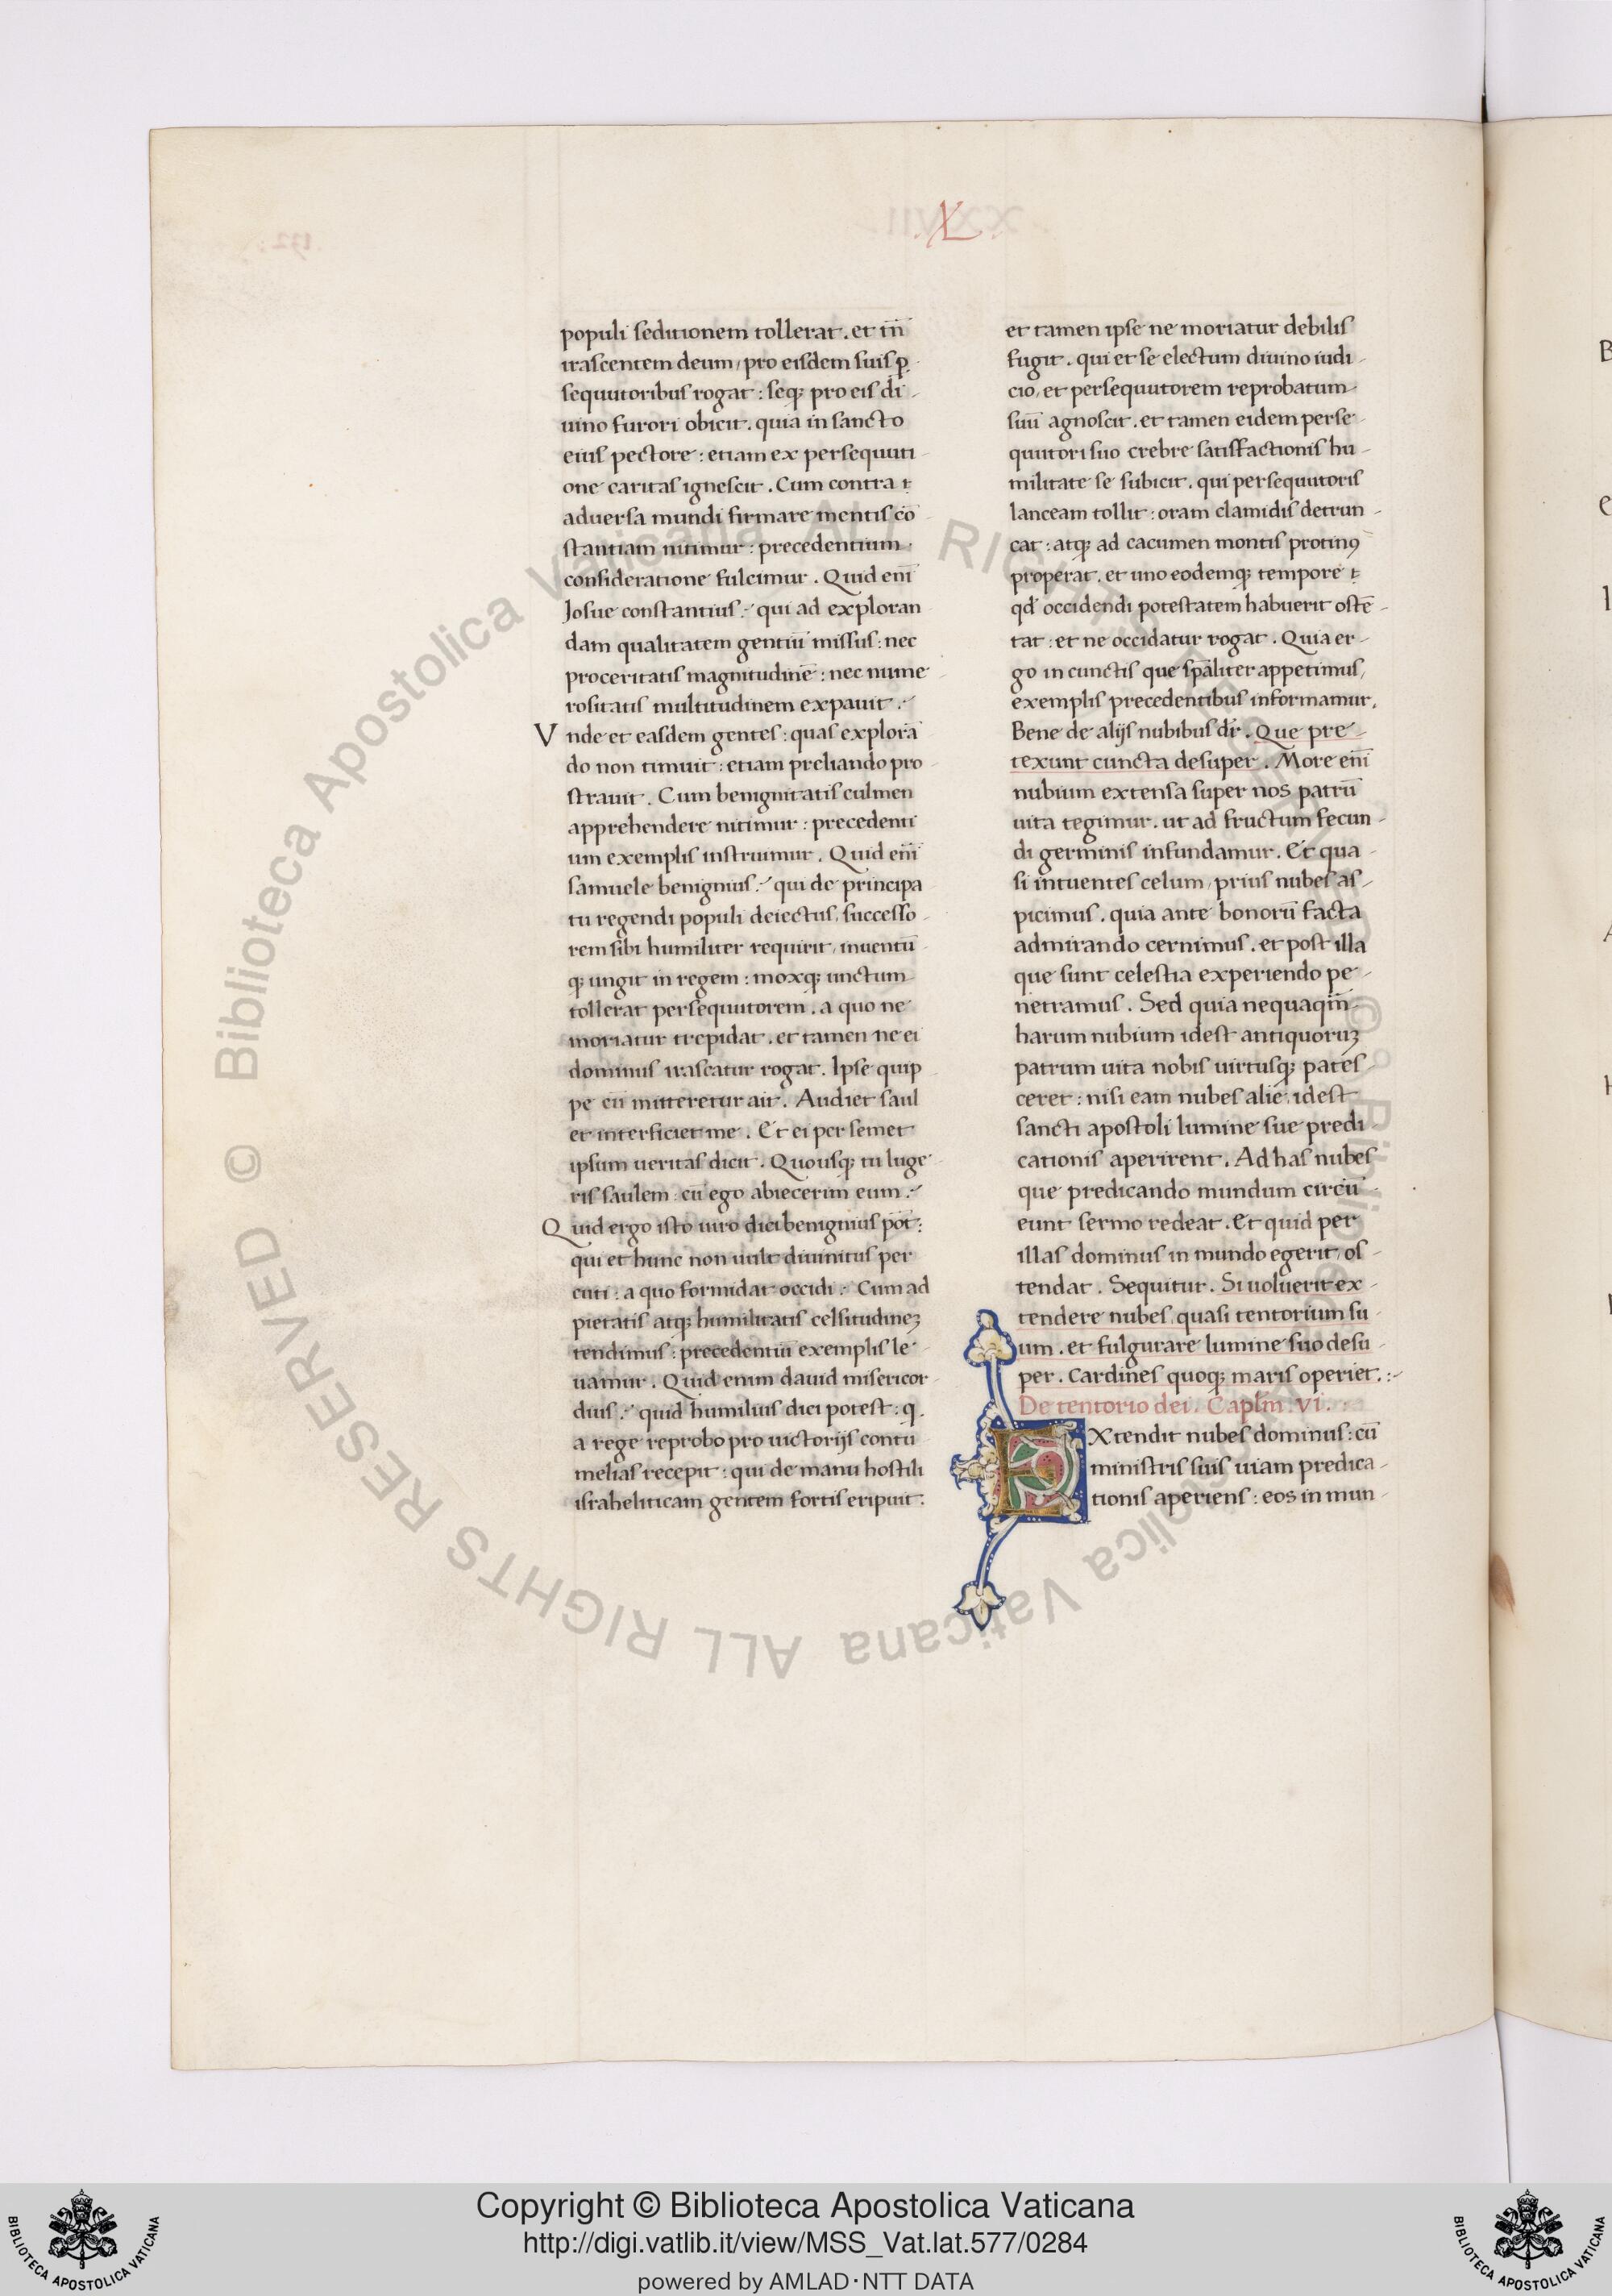 .XL.
populi seditionem tollerat . et tn̄
irascentem deum, pro eisdem suis ꝑ
sequutoribus rogat : seqꝫ pro eis di-
uino furori obicit . quia in sancto
eius pectore : etiam ex persequuti-
one caritas ignescit . Cum contra
aduersa mundi firmare mentis cō-
stantiam nitimur : precedentium
consideratione fulcimur . Quid enī
Josue constantius : qui ad exploran
dam qualitatem gentiū missus : nec
proceritatis magnitudinē : nec nume-
rositatis multitudinem expauit .
Vnde et easdem gentes : quas explorā
do non timuit : etiam preliando pro-
strauit . Cum benignitatis culmen
apprehendere nitimur : precedenti
um exemplis instruimur . Quid enī
samuele benignius : qui de principa
tu regendi populi deiectus, successo-
rem sibi humiliter requirit, inuentū-
qꝫ ungit in regem : moxqꝫ unctum
tollerat persequutorem . a quo ne
moriatur trepidat . et tamen ne ei
dominus irascatur rogat . Ipse quip
pe cū mitteretur ait . Audiet saul
et interficiet me . Et ei per semet
ipsum ueritas dicit . Quousqꝫ tu luge-
ris saulem : cū ego abiecerim eum .
Quid ergo isto uiro dici benignius pōt :
qui et hunc non uult diuinitus per
cuti : a quo formidat occidi : Cum ad
pietatis atqꝫ humilitatis celsitudineꝫ
tendimus : precedentiū exemplis le-
uamur . Quid enim dauid misericor-
dius : quid humilius dici potest : q
a rege reprobo pro uictorijs contu-
melias recepit : qui de manu hostili
israheliticam gentem fortis eripuit :
et tamen ipse ne moriatur debilis
fugit . qui et se electum diuino iudi-
cio, et persequutorem reprobatum
suū agnoscit . et tamen eidem perse-
quutori suo crebre satisfactionis hu-
militate se subicit . qui persequutoris
lanceam tollit : oram clamidis detrun-
cat : atqꝫ ad cacumen montis protinꝯ
properat . et uno eodemqꝫ tempore
qd̄ occidendi potestatem habuerit ostē-
tat : et ne occidatur rogat . Quia er-
go in cunctis que sp̄aliter appetimus,
exemplis precedentibus informamur .
Bene de alijs nubibus dr̄ . Que pre-
texunt cuncta desuper . More enī
nubium extensa super nos patrū
uita tegimur . ut ad fructum fecun-
di germinis infundamur . Et qua-
si intuentes celum, prius nubes as-
picimus . quia ante bonorū facta
admirando cernimus . et post illa
que sunt celestia experiendo pe-
netramus . Sed quia nequaqm̄
harum nubium idest antiquoruꝫ
patrum uita nobis uirtusqꝫ pates-
ceret : nisi eam nubes alie, idest
sancti apostoli lumine sue predi
cationis aperirent . Ad has nubes
que predicando mundum circū-
eunt sermo redeat . Et quid per
illas dominus in mundo egerit, os-
tendat . Sequitur . Si uoluerit ex-
tendere nubes, quasi tentorium su-
um . et fulgurare lumine suo desu-
per . Cardines quoqꝫ maris operiet . :-
De tentorio dei . Caplm̄ . VI .
EXtendit nubes dominus : cū
ministris suis uiam predica-
tionis aperiens : eos in mun-
© Biblioteca Apostolica Vaticana ALL RIGHTS RESERVED
© Biblioteca Apostolica Vaticana ALL RIGHTS RESERVED
Copyright © Biblioteca Apostolica Vaticana
http://digi.vatlib.it/view/MSS_Vat.lat.577/0284
powered by AMLAD·NTT DATA
BIBLIOTECA APOSTOLICA VATICANA
BIBLIOTECA APOSTOLICA VATICANA